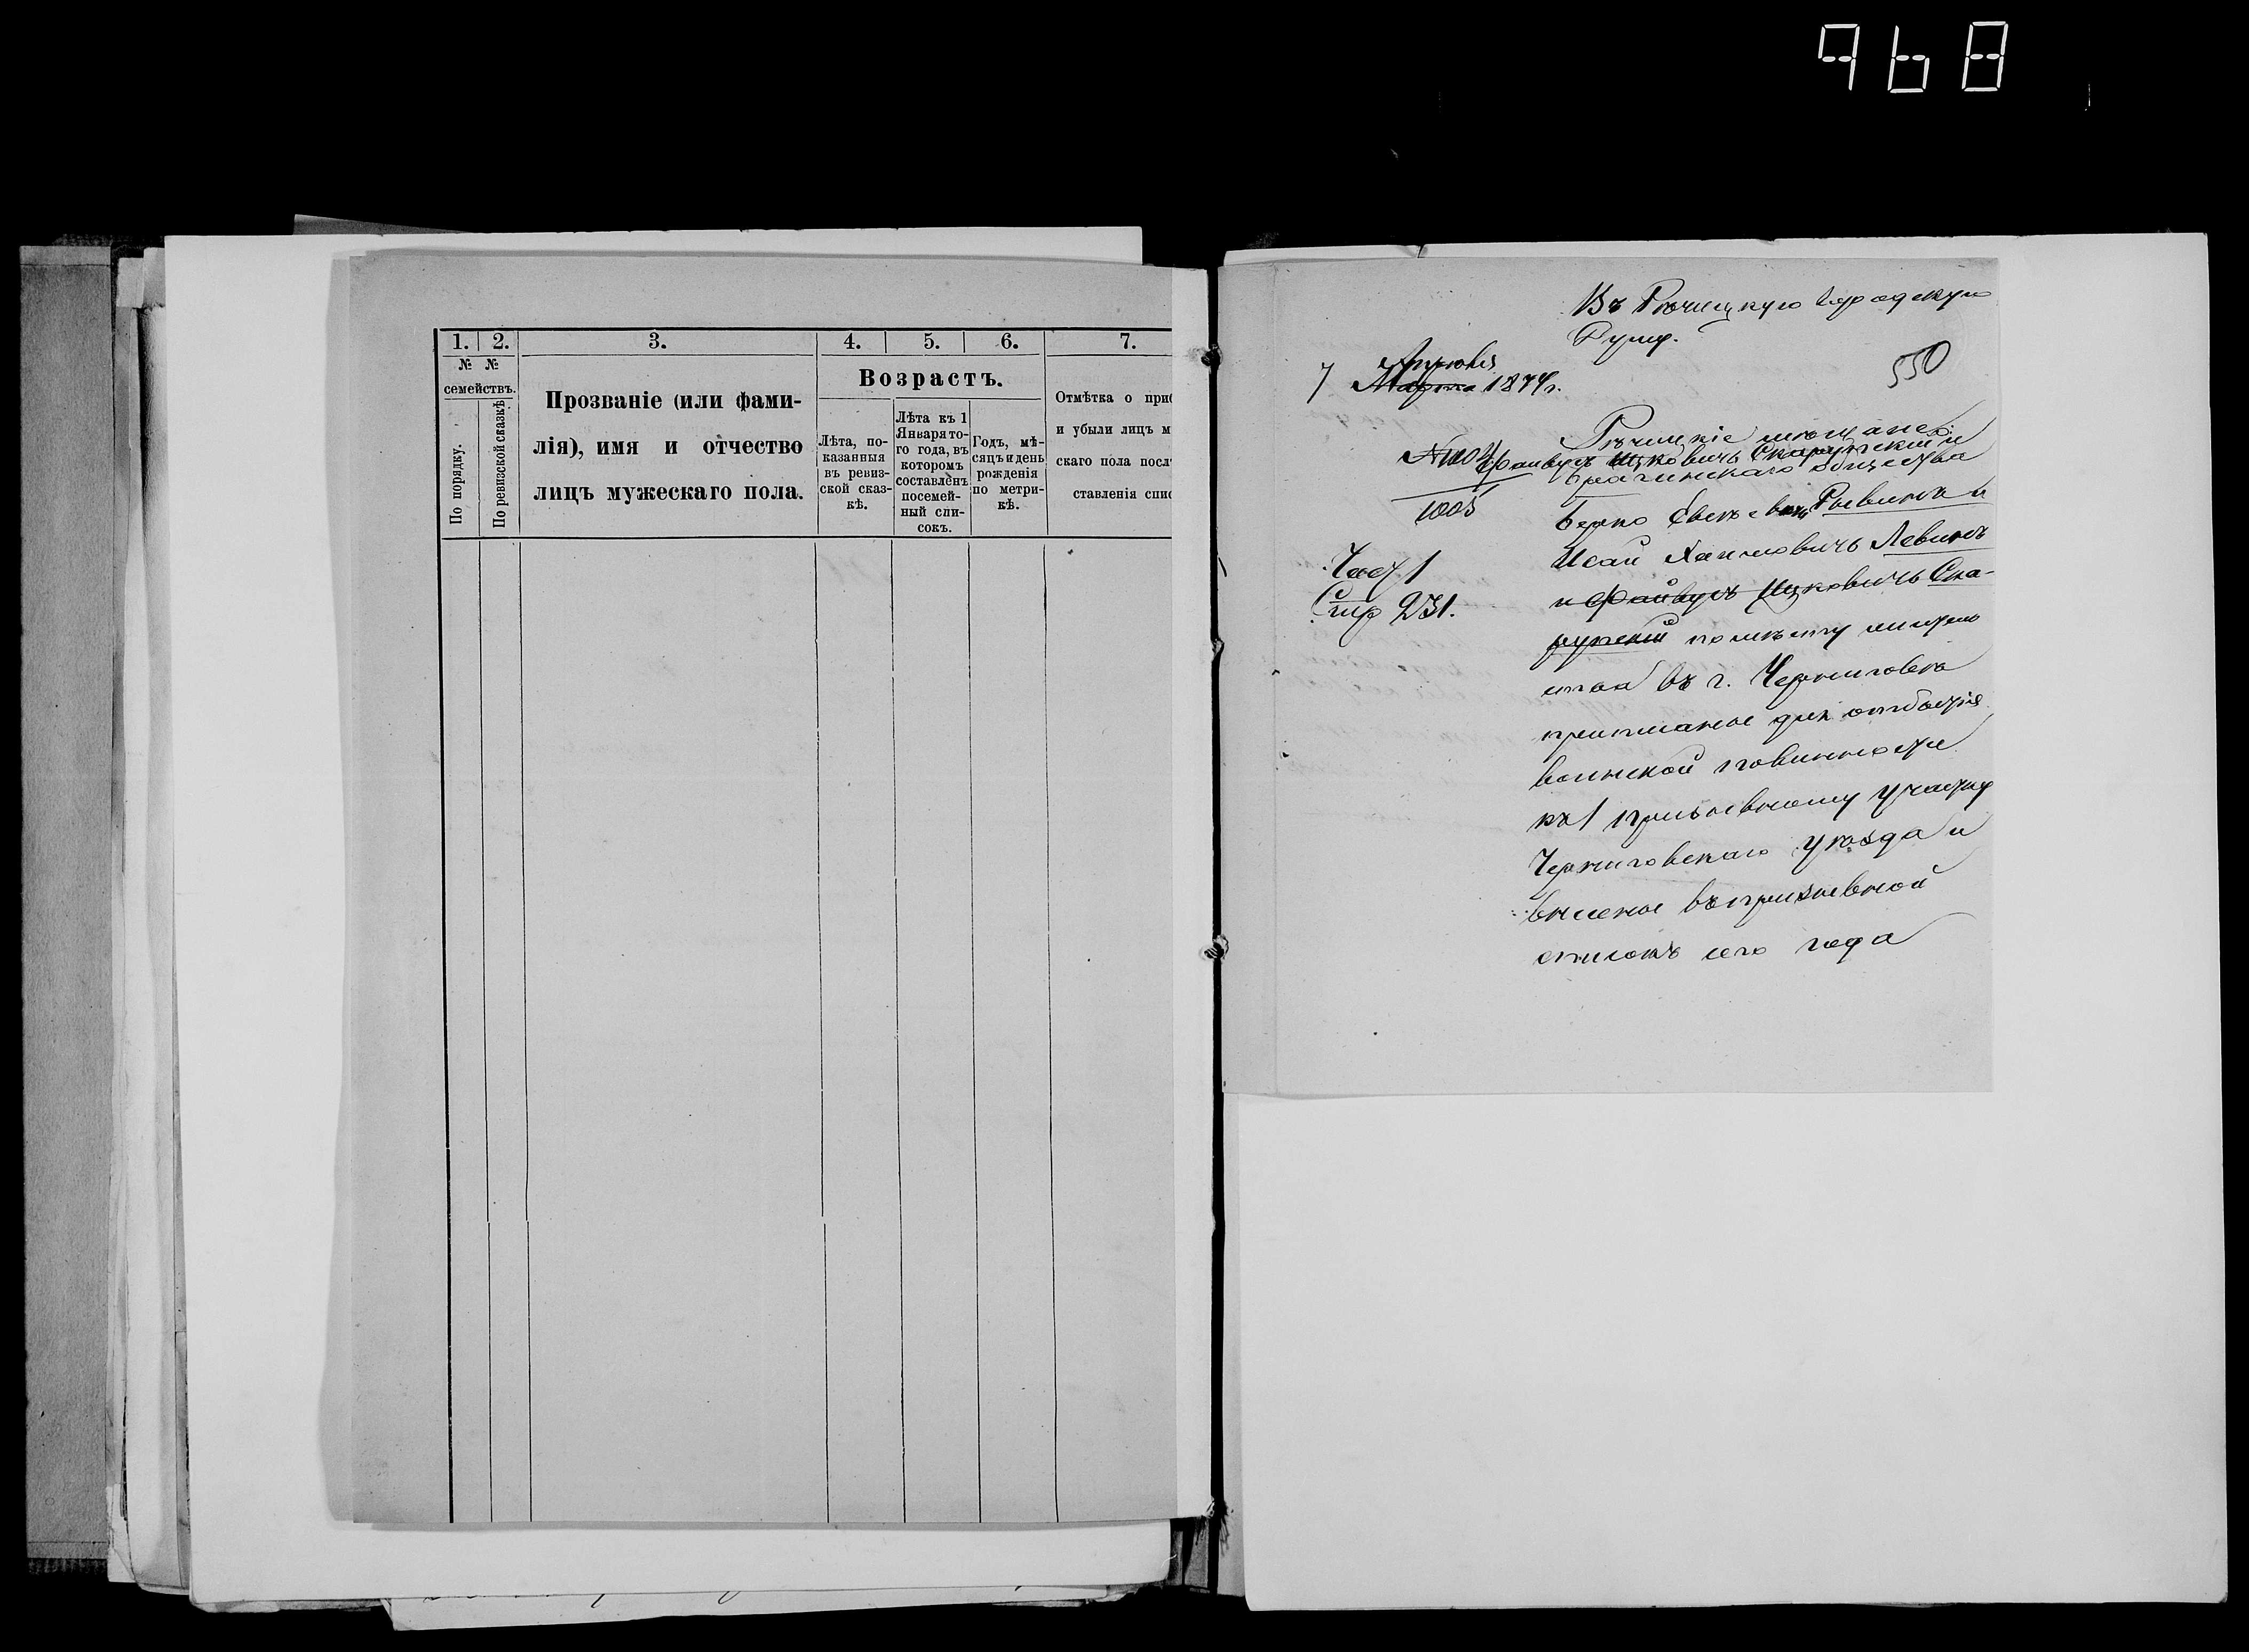 968
1. 2. 3. 4. 5. 6. 7.
№ №
семействъ.
По порядку.
По ревизской сказкѣ
Прозваніе (или фами-
лія), имя и отчество
лицъ мужескаго пола.
Возрастъ.
Лѣта, по-
казанныя
въ ревиз-
ской сказ-
кѣ.
Лѣта къ 1
Января то-
го года, въ
котором
составленъ
посемей-
ный спи-
сокъ.
Годъ, мѣ-
сяцъ и день
рожденія
по метри-
кѣ.
Отмѣтка о приб
и убыли лицъ м
скаго пола посл
ставленія спис
Въ Рѣчицкую городскую
Думу.
550
7 Апрѣля
Марта 1874 г.
№ 1004
1005
Част 1
Стр 231.
Рѣчицкіе мѣщане
Файвусъ Ицковичъ Скарупскій и
Брагинскаго общества
Берко
Левинъ
и Файвусъ Ицковичъ Ска-
рупскій по мѣсту житель
ства въ г. Черниговѣ
приписаные для отбытія
воинской повинности
къ 1 призывному участку
Черниговскаго уѣзда и
внесены въ призывной
списокъ сего года